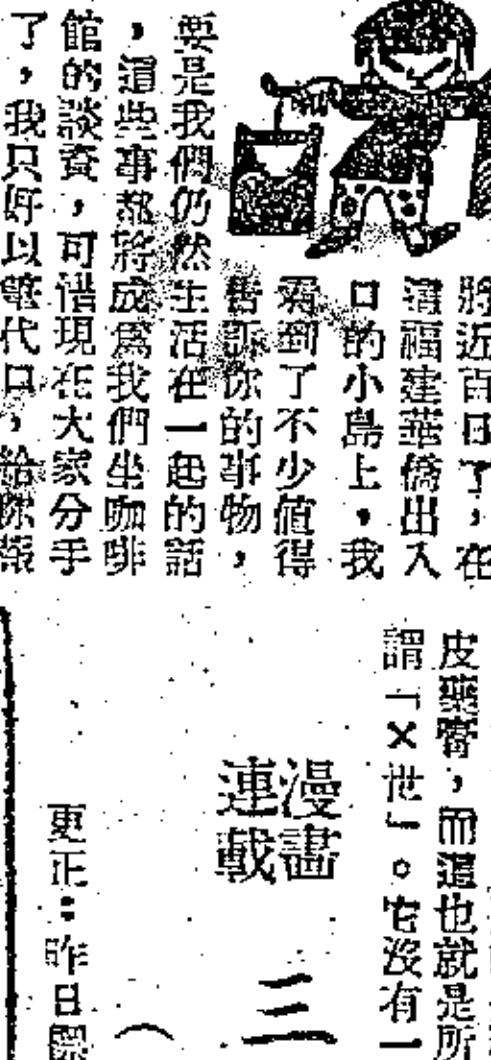 將近百日了，在
這福建華僑出入
口的小島上，我
看到了不少值得
告訴你的事物，
要是我們仍然生活在一起的話
，這些事都將成爲我們坐咖啡
館的談資，可惜現在大家分手
了，我只好以筆代口，給你報
皮藥膏，而這也就是所
謂「×世」。它沒有一
漫畫
連載
三
（
更正：昨日